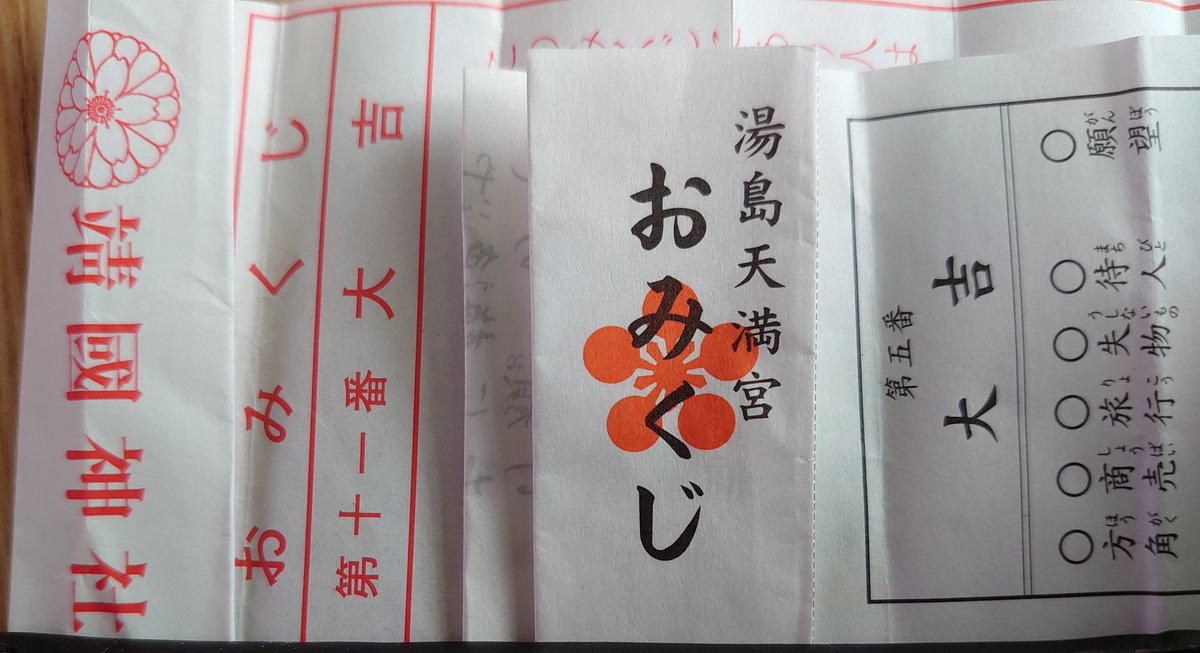 靖國神社
おみくじ
第十一番 大吉
湯島天満宮
おみくじ
第五番
大吉
○願望
○待人
○失物
○旅行
○商売
○方角